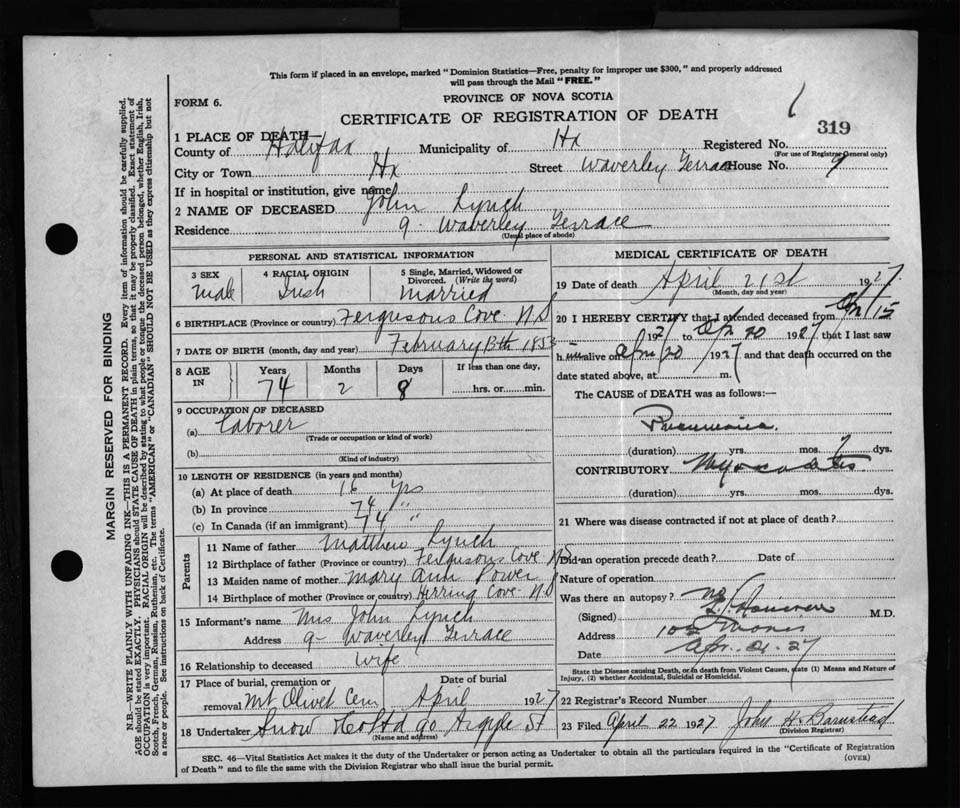 This form if placed in an envelope, marked "Dominion Statistics—Free, penalty for improper use $300," and properly addressed
will pass through the Mail "FREE."
FORM 6.
PROVINCE OF NOVA SCOTIA
CERTIFICATE OF REGISTRATION OF DEATH
319
1 PLACE OF DEATH—
County of Halifax Municipality of Hx Registered No.
(For use of Registrar General only)
City or Town Hx Street Waverley Terrace House No. 9
If in hospital or institution, give name
2 NAME OF DECEASED John Lynch
Residence 9 - Waverley Terrace
(Usual place of abode)
PERSONAL AND STATISTICAL INFORMATION
3 SEX
Male
4 RACIAL ORIGIN
Irish
5 Single, Married, Widowed or
Divorced. (Write the word)
Married
6 BIRTHPLACE (Province or country) Fergusons Cove N.S
7 DATE OF BIRTH (month, day and year) February 13th 1853
8 AGE
IN
Years
74
Months
2
Days
8
If less than one day,
hrs. or min.
9 OCCUPATION OF DECEASED
(a) Laborer
(Trade or occupation or kind of work)
(b)
(Kind of industry)
10 LENGTH OF RESIDENCE (in years and months)
(a) At place of death 16 yrs
(b) In province 74 "
(c) In Canada (if an immigrant) 74 "
Parents
11 Name of father Matthew Lynch
12 Birthplace of father (Province or country) Fergusons Cove N.S
13 Maiden name of mother Mary Ann Power
14 Birthplace of mother (Province or country) Herring Cove N.S
15 Informant's name Mrs John Lynch
Address 9 - Waverley Terrace
16 Relationship to deceased wife
17 Place of burial, cremation or Date of burial
removal Mt Olivet Cem April 1927
18 Undertaker Snow Co Ltd 90 Argyle St
(Name and address)
MEDICAL CERTIFICATE OF DEATH
19 Date of death April 21st 1927
(Month, day and year)
20 I HEREBY CERTIFY that I attended deceased from Apr 15
1927 to Apr 20 1927 that I last saw
h im alive on Apr 20 1927 and that death occurred on the
date stated above, at m.
The CAUSE of DEATH was as follows:—
Pneumonia
(duration) yrs. mos. 7 dys.
CONTRIBUTORY Myocarditis
(duration) yrs. mos. dys.
21 Where was disease contracted if not at place of death?
Did an operation precede death? Date of
Nature of operation
Was there an autopsy? No
(Signed) M.D.
Address
Date Apr. 21. 27
State the Disease causing Death, or in death from Violent Causes, state (1) Means and Nature of
Injury, (2) whether Accidental, Suicidal or Homicidal.
22 Registrar's Record Number
23 Filed April 22 1927 John H. Barnstead
(Division Registrar)
SEC. 46—Vital Statistics Act makes it the duty of the Undertaker or person acting as Undertaker to obtain all the particulars required in the "Certificate of Registration
of Death" and to file the same with the Division Registrar who shall issue the burial permit.
(OVER)
MARGIN RESERVED FOR BINDING
N.B.—WRITE PLAINLY WITH UNFADING INK—THIS IS A PERMANENT RECORD. Every item of information should be carefully supplied.
AGE should be stated EXACTLY. PHYSICIANS should STATE CAUSE OF DEATH in plain terms, so that it may be properly classified. Exact statement of
OCCUPATION is very important. RACIAL ORIGIN will be described by stating to what people or tongue the deceased person belonged, whether English, Irish,
Scotch, French, German, Russian, Ruthenian, etc. The terms "AMERICAN" or "CANADIAN" SHOULD NOT BE USED as they express citizenship but not
a race or people. See instructions on back of Certificate.